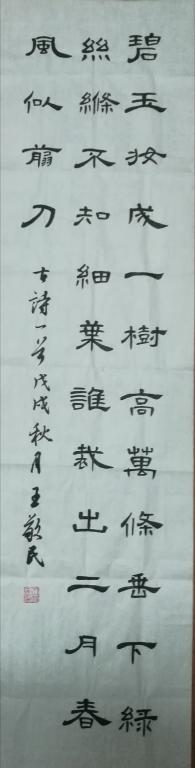 碧玉妝成一樹高萬條垂下綠
絲縧不知細葉誰裁出二月春
風似翦刀
古詩一首戊戌秋月王敬民